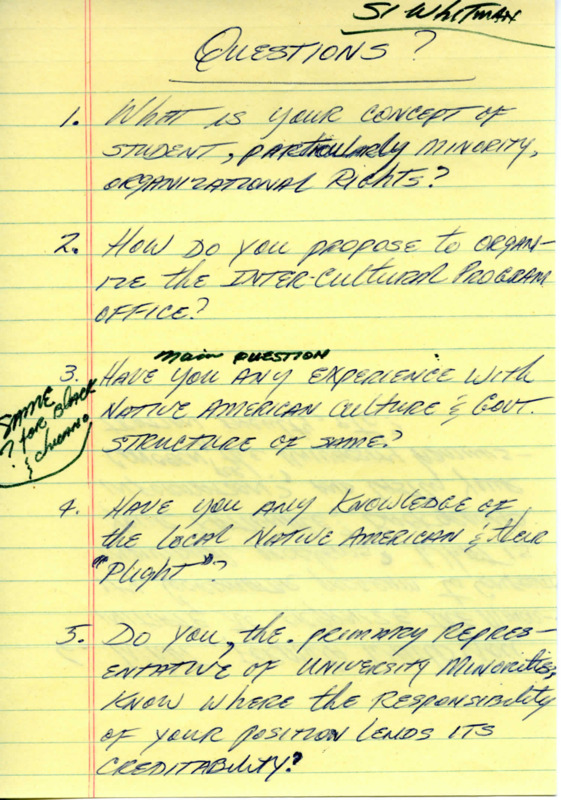 SI WHITMAN
QUESTIONS?
1. WHAT IS YOUR CONCEPT OF
STUDENT, PARTICULARLY MINORITY,
ORGANIZATIONAL RIGHTS?
2. HOW DO YOU PROPOSE TO ORGAN-
IZE THE INTER-CULTURAL PROGRAM
OFFICE?
MAIN QUESTION
3. HAVE YOU ANY EXPERIENCE WITH
NATIVE AMERICAN CULTURE & GOVT.
STRUCTURE OF SAME?
SAME
? FOR BLACK
& CHICANO
4. HAVE YOU ANY KNOWLEDGE OF
THE LOCAL NATIVE AMERICAN & THEIR
"PLIGHT"?
5. DO YOU, THE PRIMARY REPRES-
ENTATIVE OF UNIVERSITY MINORITIES,
KNOW WHERE THE RESPONSIBILITY
OF YOUR POSITION LENDS ITS
CREDITABILITY?